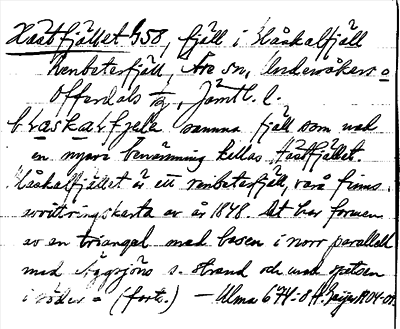 Hästfjället 958, fjäll i Håskalfjäll
Renbetesfjäll, Åre sn, Undersåkers o
Offerdals tg, Jämtl. l.
håskalfjella samma fjäll som med
en nyare benämning kallas Hästfjället.
Håskalfjället är ett renbetesfjäll, varå finns
avvittringskarta av år 1848. Det har formen
av en triangel med basen i norr parallell
med Äggsjöns s. strand och med spetsen
i söder = (forts.) — Ulma 674:8 H. Geijer 1904-05.